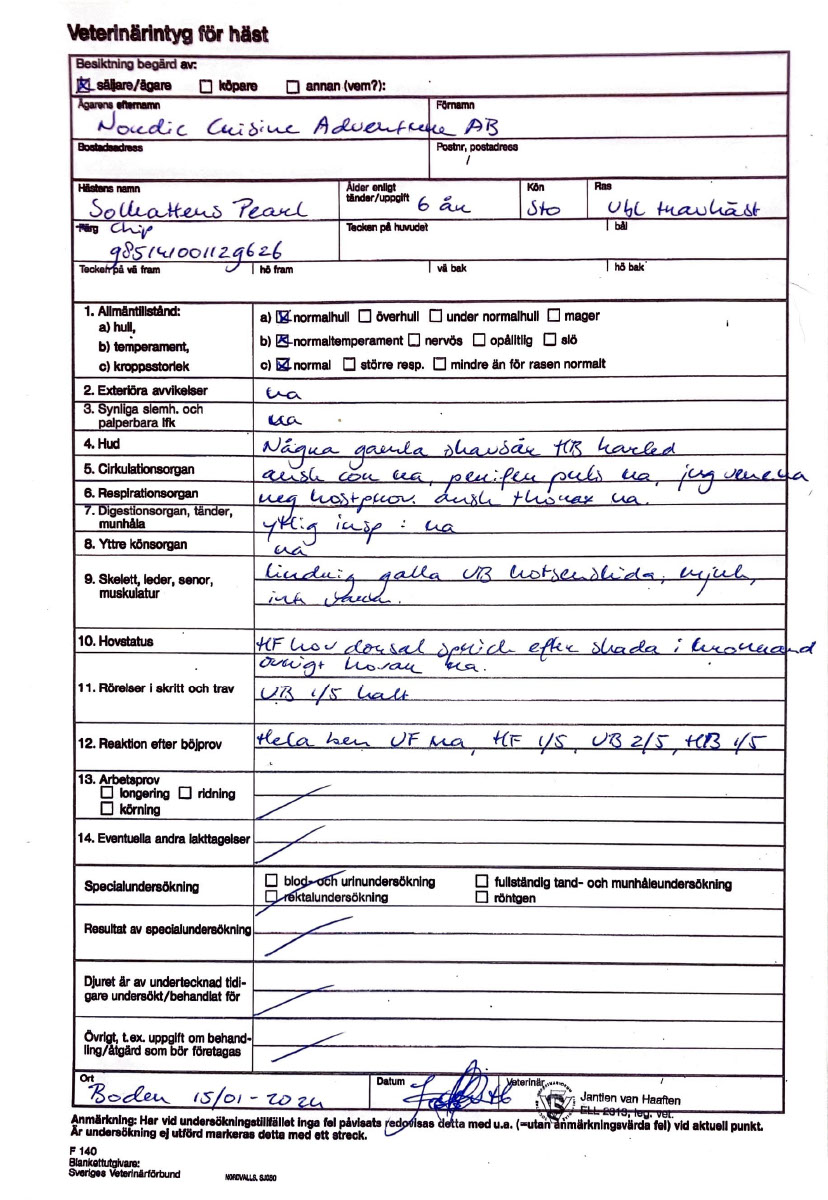 Veterinärintyg för häst
Besiktning begärd av:
säljare/ägare köpare annan (vem?):
Ägarens efternamn Förnamn
Nordic Cuisine AB
Bostadsadress Postnr, postadress
/
Hästens namn Ålder enligt tänder/uppgift Kön Ras
Solkattens Pearl 6 år Sto Vbl travhäst
Färg Chip Tecken på huvudet bål
985141001129626
Tecken på vä fram hö fram vä bak hö bak
1. Allmäntillstånd: a) normalhull överhull under normalhull mager
a) hull,
b) temperament, b) normaltemperament nervös opålitlig slö
c) kroppsstorlek c) normal större resp. mindre än för rasen normalt
2. Exteriöra avvikelser ua
3. Synliga slemh. och
palperbara lfk ua
4. Hud Några gamla skavsår HB karled
5. Cirkulationsorgan ausk cor ua, perifer puls ua, jug vener ua
6. Respirationsorgan neg hostprov. ausk thorax ua.
7. Digestionsorgan, tänder,
munhåla ytlig insp : ua
8. Yttre könsorgan ua
9. Skelett, leder, senor, lindrig galla VB hotsenskida, mjuk,
muskulatur
10. Hovstatus HF hov dorsal sprick efter skada i kronrand
övrigt hovar ua.
11. Rörelser i skritt och trav VB 1/5 halt
12. Reaktion efter böjprov Hela ben VF ua, HF 1/5, VB 2/5, HB 1/5
13. Arbetsprov
longering ridning
körning
14. Eventuella andra iakttagelser
Specialundersökning blod- och urinundersökning fullständig tand- och munhåleundersökning
rektalundersökning röntgen
Resultat av specialundersökning
Djuret är av undertecknad tidi-
gare undersökt/behandlat för
Övrigt, t.ex. uppgift om behand-
ling/åtgärd som bör företagas
Ort Datum Veterinär
Boden 15/01-2024 Jantien van Haaften
ELL 2313, leg. vet.
Anmärkning: Har vid undersökningstillfället inga fel påvisats redovisas detta med u.a. (=utan anmärkningsvärda fel) vid aktuell punkt.
Är undersökning ej utförd markeras detta med ett streck.
F 140
Blankettutgivare:
Sveriges Veterinärförbund NORDVALLS, SJ050